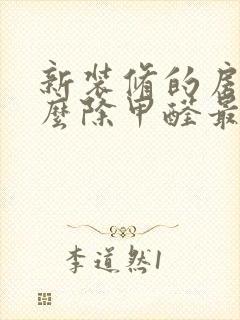 新装修的房
么除甲醛最
李道然1